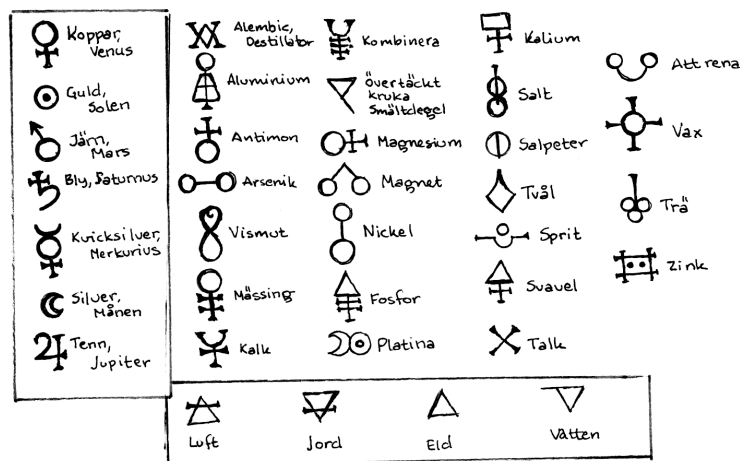 Koppar,
Venus
Guld,
Solen
Järn,
Mars
Bly, Saturnus
Kvicksilver,
Merkurius
Silver,
Månen
Tenn,
Jupiter
Alembic,
Destillator
Aluminium
Antimon
Arsenik
Vismut
Mässing
Kalk
Kombinera
Övertäckt
kruka
Smältdegel
Magnesium
Magnet
Nickel
Fosfor
Platina
Kalium
Salt
Salpeter
Tvål
Sprit
Svavel
Talk
Att rena
Vax
Trä
Zink
Luft
Jord
Eld
Vatten